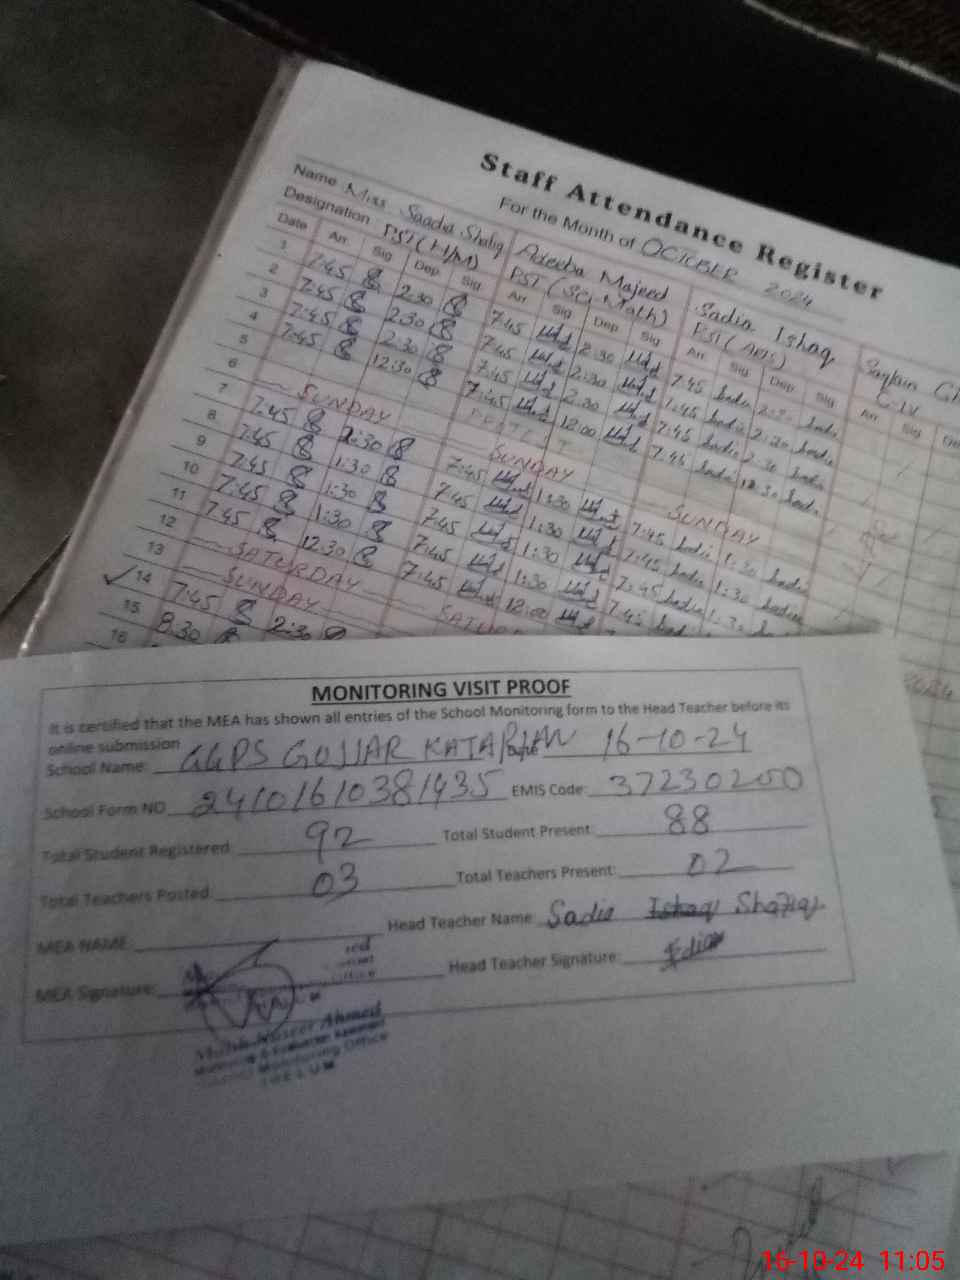 Staff Attendance Register
For the Month of OCTOBER 2024
Name Miss Saadia Shafiq Adeeba Majeed Sadia Ishaq
Designation PST (H/M) PST (Sci Math) PST (Arts) C-IV
Date Arr Sig Dep Sig Arr Sig Dep Sig Arr Sig Dep Sig Arr Sig
1 7:45 2:30 7:45 2:30 7:45
2 7:45 2:30 7:45 2:30 7:45 2:30
3 7:45 2:30 7:45 2:30 7:45 2:30
4 7:45 12:30 7:45 12:00 7:45 12:30
5
6 SUNDAY SUNDAY SUNDAY
7 7:45 2:30 7:45 1:30 7:45 1:30
8 7:45 1:30 7:45 1:30 7:45 1:30
9 7:45 1:30 7:45 1:30 7:45 1:30
10 7:45 1:30 7:45 1:30 7:45
11 7:45 12:30 7:45 12:00
12 SATURDAY
13 SUNDAY
✓14 7:45 2:30
15 8:30
16
MONITORING VISIT PROOF
It is certified that the MEA has shown all entries of the School Monitoring form to the Head Teacher before its
online submission
School Name: GGPS GOJJAR KATARIAN 16-10-24
School Form NO 24101610381435 EMIS Code: 37230200
Total Student Registered: 92 Total Student Present: 88
Total Teachers Posted: 03 Total Teachers Present: 02
MEA NAME Head Teacher Name Sadia Ishaq Shafiq
MEA Signature: Head Teacher Signature:
Ahmed
Monitoring Office
JHELUM
16-10-24 11:05